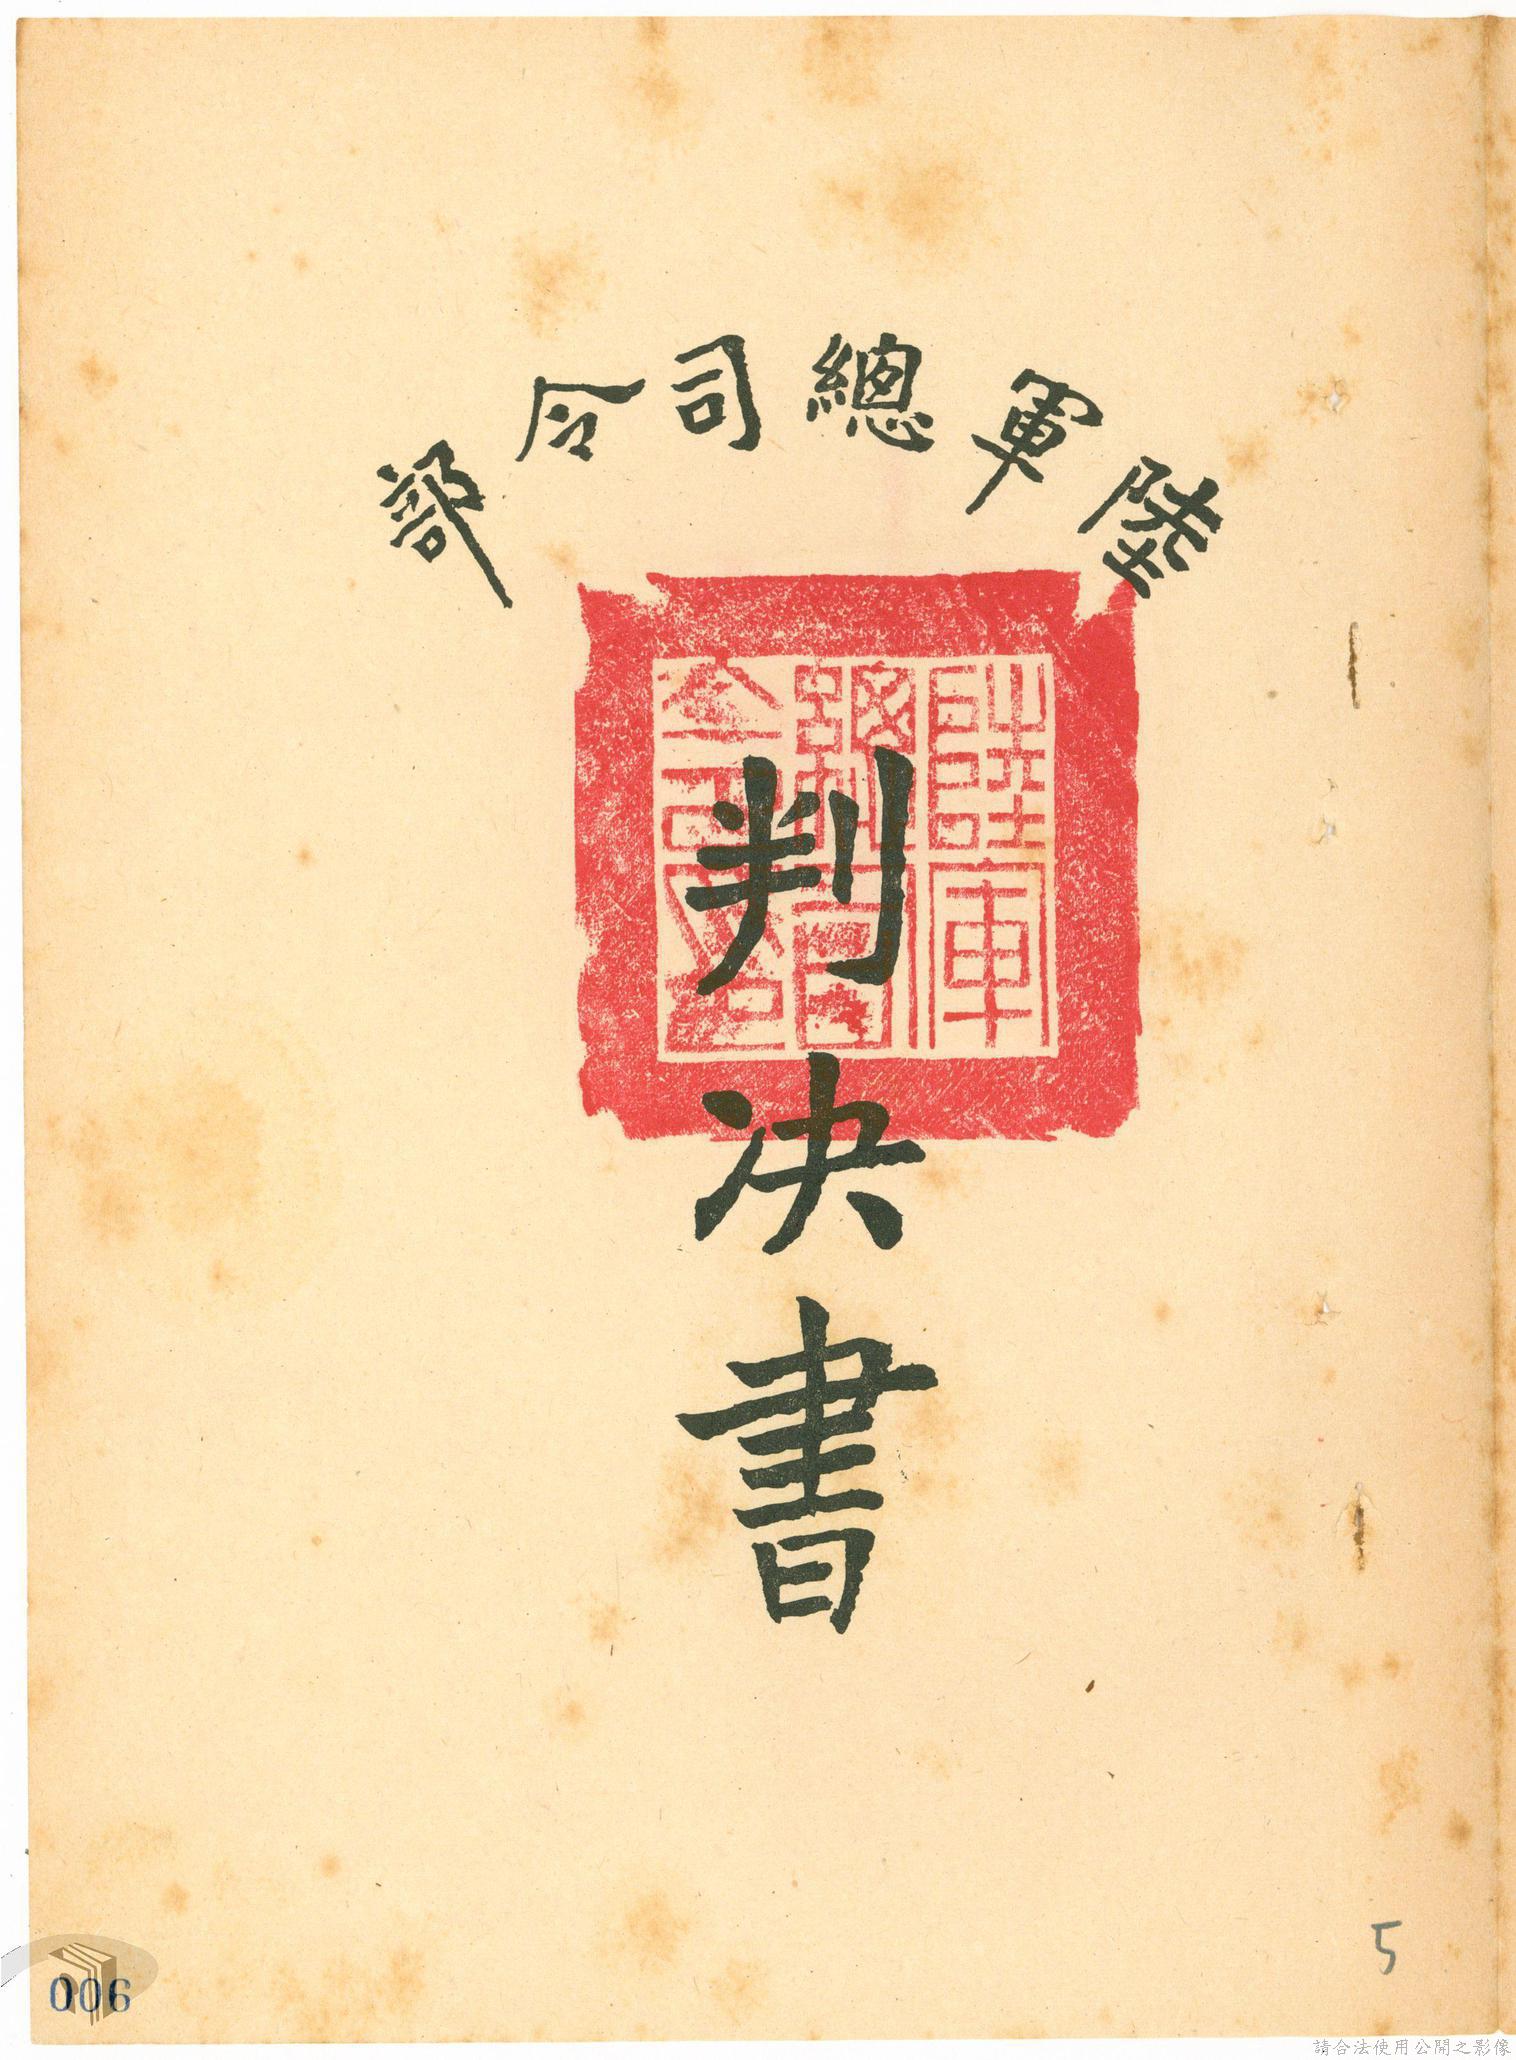 陸軍總司令部
陸軍總司令部印
判決書
5
006
請合法使用公開之影像